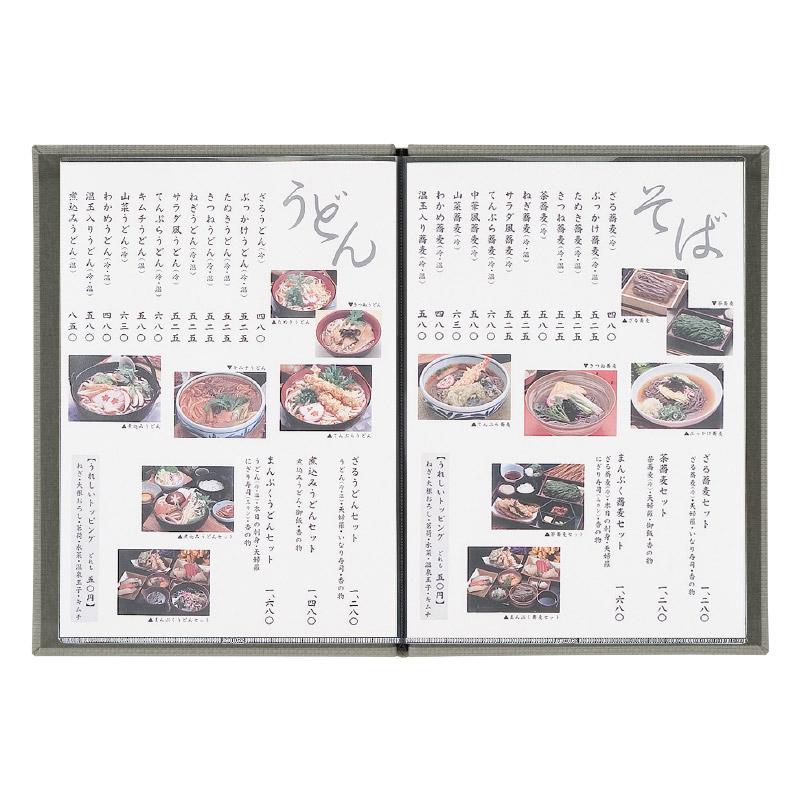 そば
ざる蕎麦(冷) 四八〇
ぶっかけ蕎麦(冷・温) 五二五
たぬき蕎麦(冷・温) 五二五
きつね蕎麦(冷・温) 五二五
茶蕎麦(冷) 五八〇
ねぎ蕎麦(冷・温) 五二五
サラダ風蕎麦(冷) 五二五
てんぷら蕎麦(冷・温) 六八〇
中華風蕎麦(冷) 五八〇
山菜蕎麦(冷・温) 六三〇
わかめ蕎麦(冷・温) 四八〇
温玉入り蕎麦(冷・温) 五八〇
▼茶蕎麦
▲ざる蕎麦
▼きつね蕎麦
▲ぶっかけ蕎麦
▲てんぷら蕎麦
ざる蕎麦セット 一、二八〇
ざる蕎麦(冷)・天婦羅・いなり寿司・香の物
茶蕎麦セット 一、二八〇
茶蕎麦(冷)・天婦羅・御飯・香の物
まんぷく蕎麦セット 一、六八〇
ざる蕎麦(冷)・本日の刺身・天婦羅
にぎり寿司(五カン)・香の物
▲茶蕎麦セット
▲まんぷく蕎麦セット
【うれしいトッピング どれも 五〇円】
ねぎ・大根おろし・茗荷・水菜・温泉玉子・キムチ
うどん
ざるうどん(冷) 四八〇
ぶっかけうどん(冷・温) 五二五
たぬきうどん(冷・温) 五二五
きつねうどん(冷・温) 五二五
ねぎうどん(冷・温) 五二五
サラダ風うどん(冷) 五二五
てんぷらうどん(冷・温) 六八〇
キムチうどん(温) 五八〇
山菜うどん(冷・温) 六三〇
わかめうどん(冷・温) 四八〇
温玉入りうどん(冷・温) 五八〇
煮込みうどん(温) 八五〇
▼きつねうどん
▲たぬきうどん
▼キムチうどん
▲てんぷらうどん
▲煮込みうどん
ざるうどんセット 一、二八〇
うどん(冷・温)・天婦羅・いなり寿司・香の物
煮込みうどんセット 一、四八〇
煮込みうどん・御飯・香の物
まんぷくうどんセット 一、六八〇
うどん(冷・温)・本日の刺身・天婦羅
にぎり寿司(五カン)・香の物
▲煮込みうどんセット
▲まんぷくうどんセット
【うれしいトッピング どれも 五〇円】
ねぎ・大根おろし・茗荷・水菜・温泉玉子・キムチ